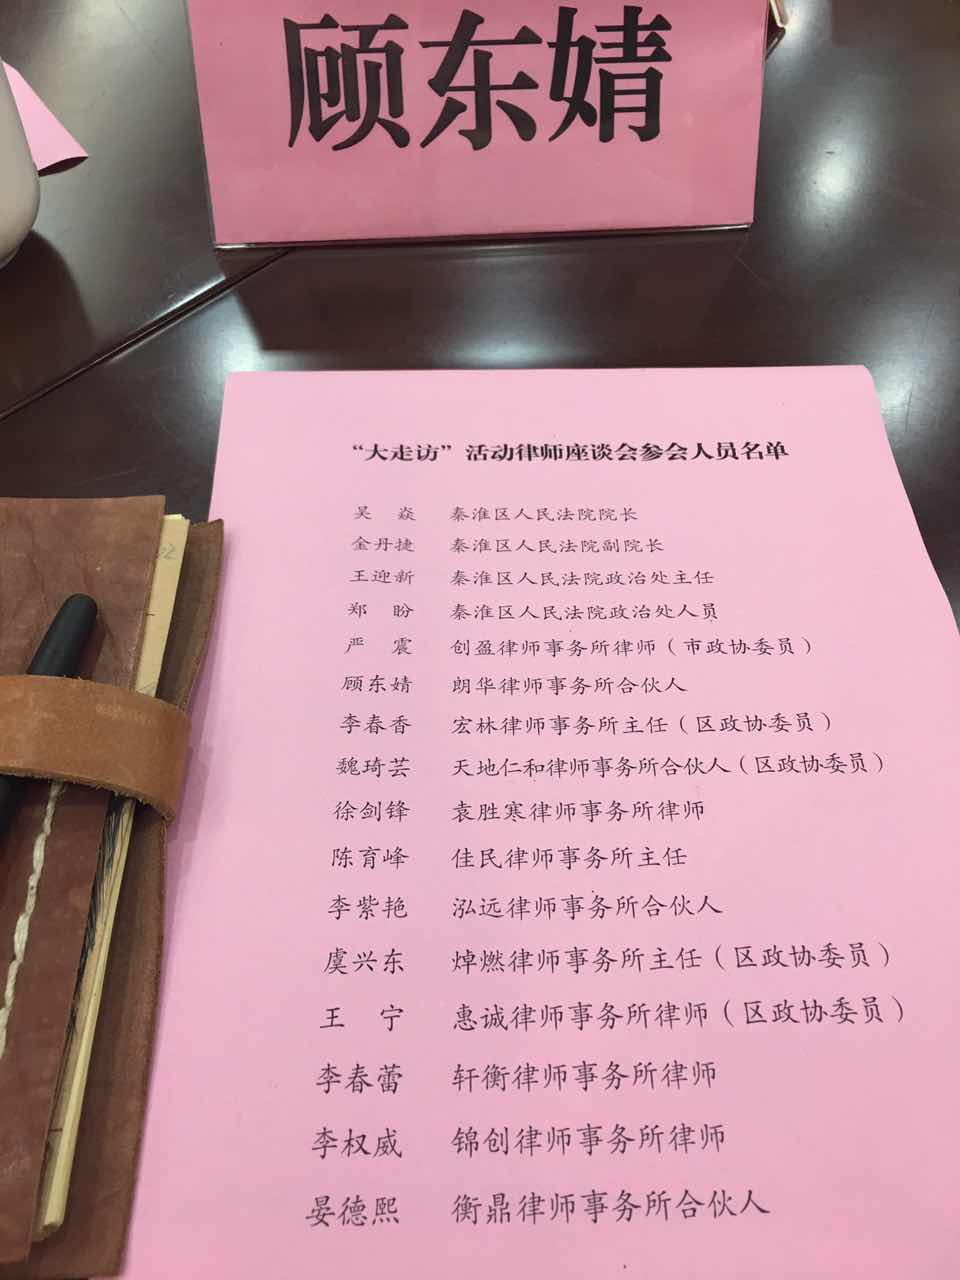 顾东婧
“大走访”活动律师座谈会参会人员名单
吴 焱 秦淮区人民法院院长
金丹捷 秦淮区人民法院副院长
王迎新 秦淮区人民法院政治处主任
郑 盼 秦淮区人民法院政治处人员
严 震 创盈律师事务所律师（市政协委员）
顾东婧 朗华律师事务所合伙人
李春香 宏林律师事务所主任（区政协委员）
魏琦芸 天地仁和律师事务所合伙人（区政协委员）
徐剑锋 袁胜寒律师事务所律师
陈育峰 佳民律师事务所主任
李紫艳 泓远律师事务所合伙人
虞兴东 焯燃律师事务所主任（区政协委员）
王 宁 惠诚律师事务所律师（区政协委员）
李春蕾 轩衡律师事务所律师
李权威 锦创律师事务所律师
晏德熙 衡鼎律师事务所合伙人